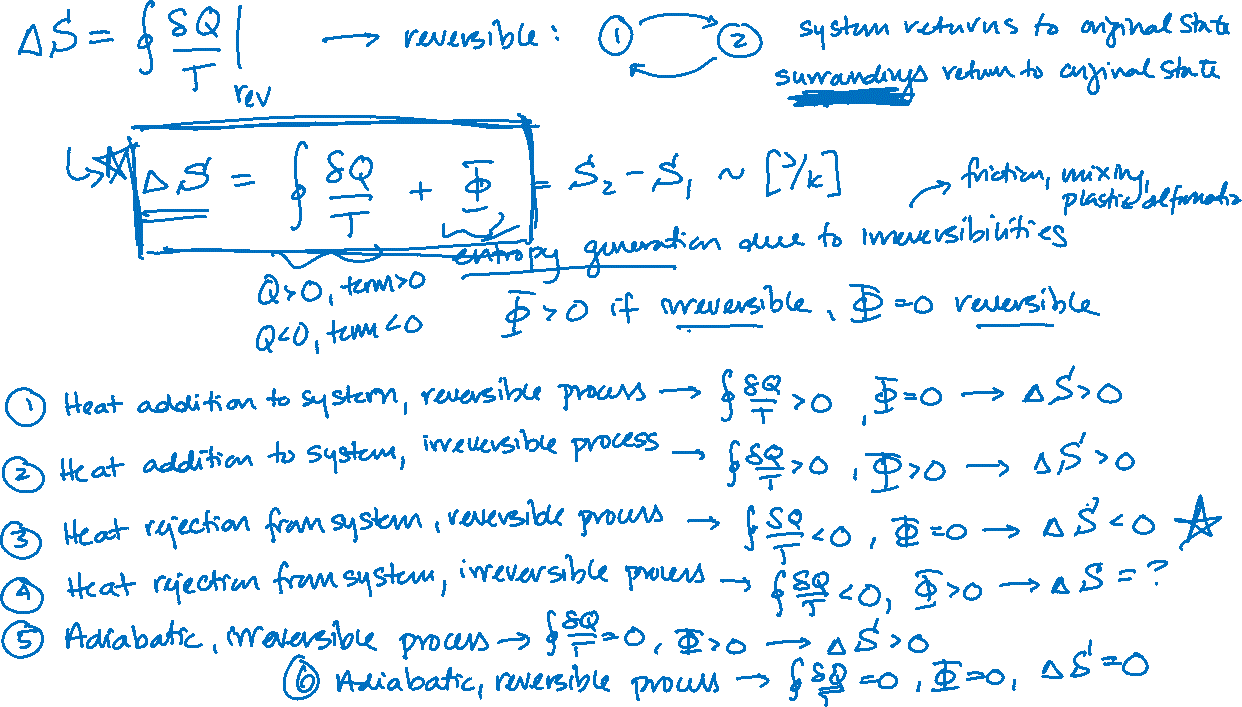 ΔS = ∮ δQ/T |rev → reversible: ① ② system returns to original state
surroundings return to original state
ΔS = ∮ δQ/T + Φ = S₂ - S₁ ~ [J/K] → friction, mixing, plastic deformatio
entropy generation due to irreversibilities
Q>0, term>0
Q<0, term<0
Φ>0 if irreversible, Φ=0 reversible
① Heat addition to system, reversible process → ∮ δQ/T >0, Φ=0 → ΔS>0
② Heat addition to system, irreversible process → ∮ δQ/T >0, Φ>0 → ΔS>0
③ Heat rejection from system, reversible process → ∮ δQ/T <0, Φ=0 → ΔS<0 ☆
④ Heat rejection from system, irreversible process → ∮ δQ/T <0, Φ>0 → ΔS = ?
⑤ Adiabatic, irreversible process → ∮ δQ/T =0, Φ>0 → ΔS>0
⑥ Adiabatic, reversible process → ∮ δQ/T =0, Φ=0, ΔS=0